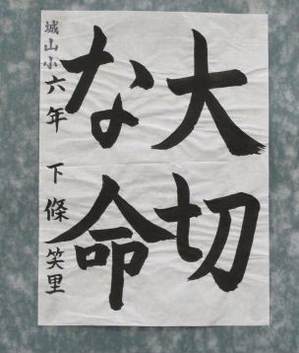 大切
な命
城山小六年 下條笑里